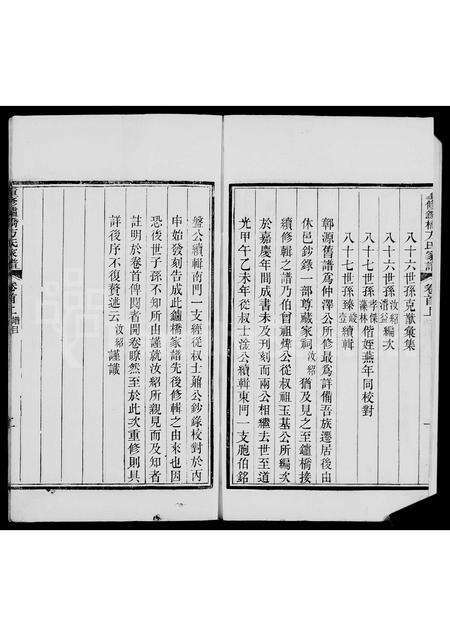 重修鑪橋方氏家譜卷首上
八十六世孫克猷彙集
八十六世孫汝紹濬益編次
八十七世孫孝保臻林偕姪燕年同校對
八十七世孫臻峻臻壹續輯
鄣源舊譜為仲澤公所修最為詳備吾族遷居後由
休邑鈔錄一部尊藏家祠汝紹猶及見之至鑪橋接
續修輯之譜乃伯曾祖煒公從叔祖玉基公所編次
於嘉慶年間成書未及刊刻而兩公相繼去世至道
光甲午乙未年從叔士淦公續輯東門一支胞伯銘
盤公續輯南門一支經從叔士鼐公鈔錄校對於丙
申始發刻告成此鑪橋家譜先後修輯之由來也因
恐後世子孫不知所由謹就汝紹所親見而及知者
註明於卷首俾閱者開卷瞭然至於此次重修則具
詳後序不復贅述云汝紹謹識
重修鑪橋方氏家譜
卷首上
譜目
一